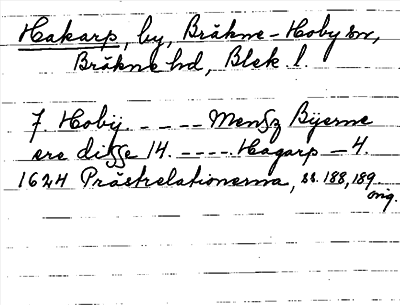 Hakarp, by, Bräkne-Hoby sn,
Bräkne hd, Blek. l.
7. Hobÿ. - - - - - Mengz Bÿerne
ere ditzse 14. - - - - Hagarp - 4.
1624 Prästrelationerna, ss. 188, 189
orig.